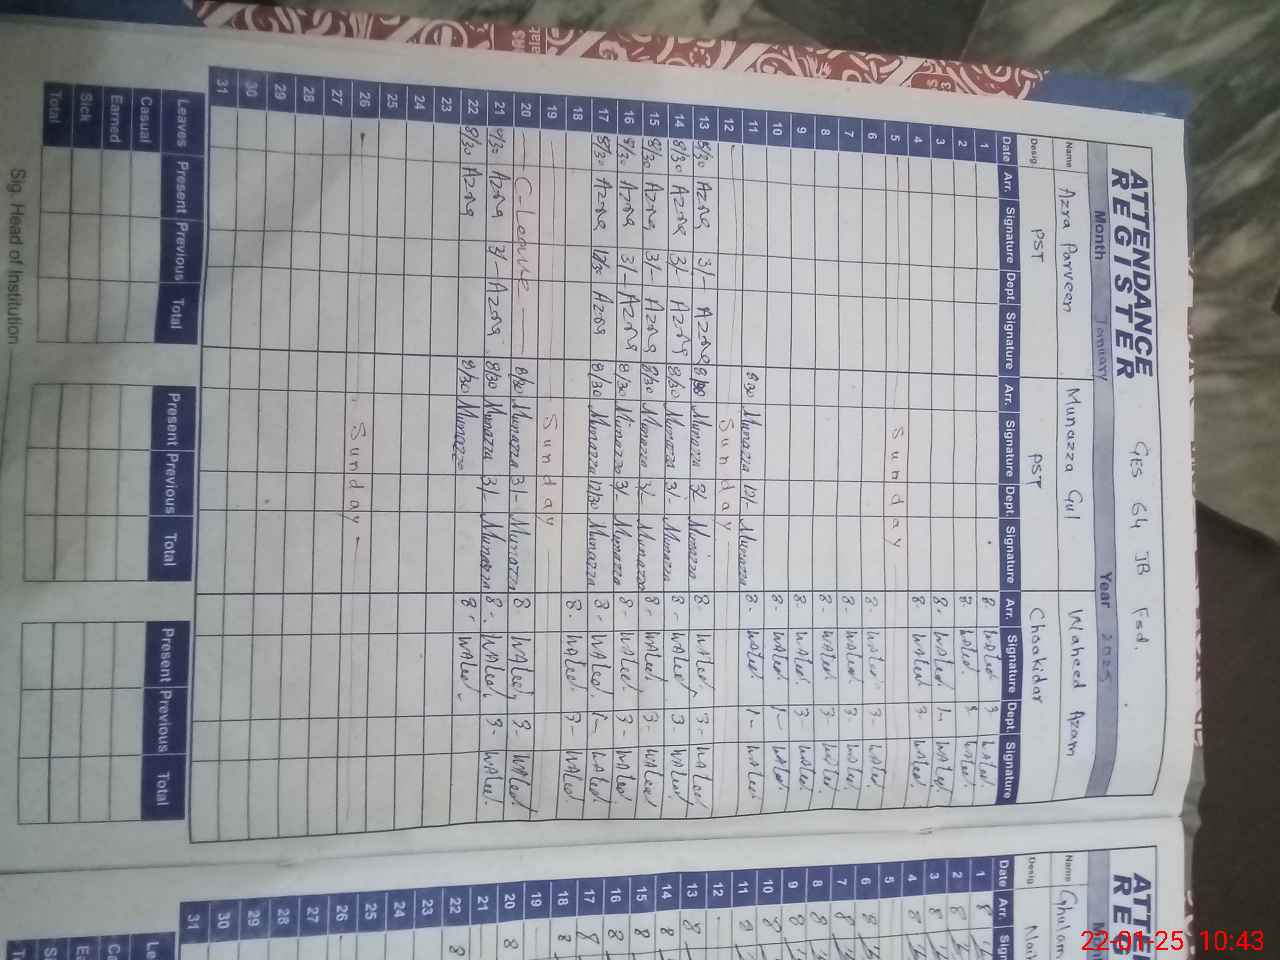 ATTENDANCE
REGISTER
GES 64 JB Fsd.
Month January Year 2025
Name Azra Parveen Munazza Gul Waheed Azam
Desig PST PST Chookidar
Date Arr. Signature Dept. Signature Arr. Signature Dept. Signature Arr. Signature Dept. Signature
1 8- Waled 3 Waled
2 8- Waled. 3 Waled.
3 8- Waled 1- Waled.
4 8- Waled 3- Waled.
5 Sunday
6 8- Waled 3- Waled.
7 8- Waled. 3- Waled.
8 8- Waled. 3- Waled.
9 8- Waled. 3- Waled.
10 8- Waled. 1- Waled.
11 8/30 Munazza 12/- Munazza 8- Waled. 1- Waled.
12 Sunday
13 8/30 Azra 3/- Azra 8/30 Munazza 3/- Munazza 8- Waled. 3- Waled
14 8/30 Azra 3/- Azra 8/30 Munazza 3/- Munazza 8- Waled. 3- Waled.
15 8/30 Azra 3/- Azra 8/30 Munazza 3/- Munazza 8- Waled 3- Waled
16 8/30 Azra 3/- Azra 8/30 Munazza 3/- Munazza 8- Waled. 3- Waled
17 8/30 Azra 12/30 Azra 8/30 Munazza 12/30 Munazza 8- Waled. 1- Waled
18 8- Waled. 3- Waled.
19 Sunday
20 C-Leave 8/30 Munazza 3/- Munazza 8 Waled, 3- Waled
21 8/30 Azra 3/- Azra 8/30 Munazza 3/- Munazza 8- Waled. 3- Waled.
22 8/30 Azra 8/30 Munazza 8- Waled.
23
24
25
26 Sunday
27
28
29
30
31
Leaves Present Previous Total Present Previous Total Present Previous Total
Casual
Earned
Sick
Total
Sig. Head of Institution
Name Ghulam
Desig
Date Arr.
1 8
2 8
3 8
4 8
5
6 8
7 8
8 8
9 8
10 8
11 8
12
13 8
14 8
15 8
16 8
17 8
18 8
19
20 8
21
22 8
23
24
25
26
27
28
29
30
31
22-01-25 10:43